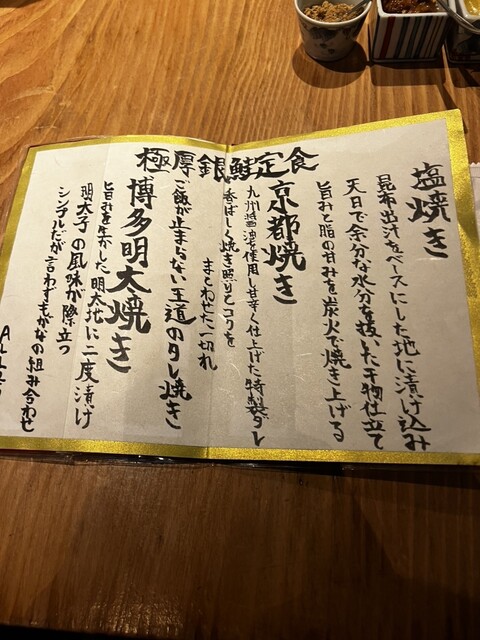 極厚銀鮭定食
塩焼き
昆布出汁をベースにした地に漬け込み
天日で余分な水分を抜いた干物仕立て
旨みと脂の甘みを炭火で焼き上げる
京都焼き
九州醤油を使用し甘辛く仕上げた特製ダレ
香ばしく焼き照りとコクを
まとわせた一切れ
ご飯が止まらない王道のタレ焼き
博多明太焼き
旨みを生かした明太地に二度漬け
明太子の風味が際立つ
シンプルだが言わずもがなの組み合わせ